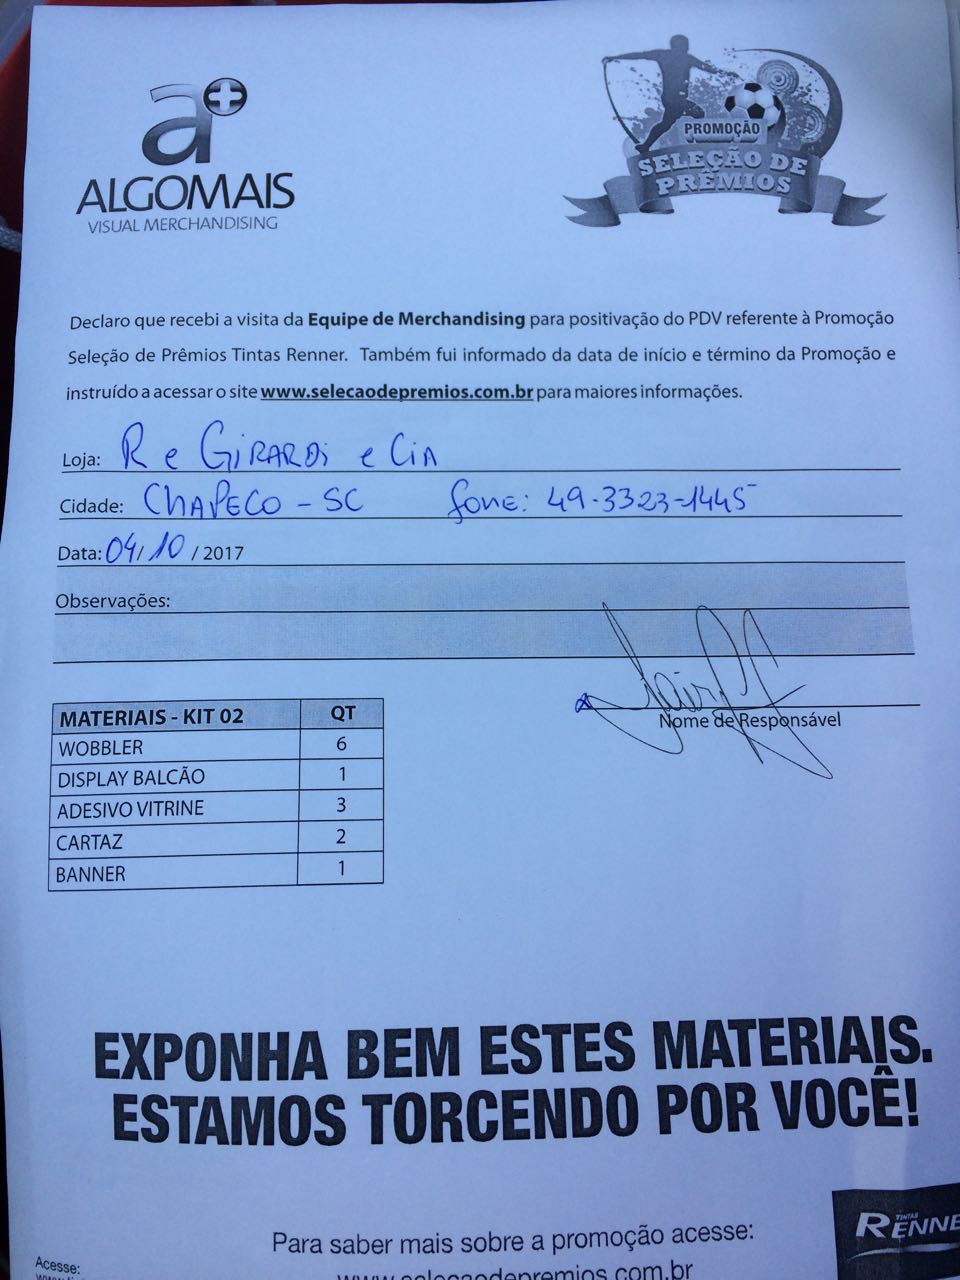 a+
ALGOMAIS
VISUAL MERCHANDISING
PROMOÇÃO
SELEÇÃO DE
PRÊMIOS
Declaro que recebi a visita da Equipe de Merchandising para positivação do PDV referente à Promoção
Seleção de Prêmios Tintas Renner. Também fui informado da data de início e término da Promoção e
instruído a acessar o site www.selecaodepremios.com.br para maiores informações.
Loja: R e GIRARDi e CiA
Cidade: CHAPECO - SC fone: 49-3323-1445
Data: 04/10/2017
Observações:
Nome de Responsável
MATERIAIS - KIT 02 QT
WOBBLER 6
DISPLAY BALCÃO 1
ADESIVO VITRINE 3
CARTAZ 2
BANNER 1
EXPONHA BEM ESTES MATERIAIS.
ESTAMOS TORCENDO POR VOCÊ!
TINTAS
RENNE
Para saber mais sobre a promoção acesse:
www.selecaodepremios.com.br
Acesse: